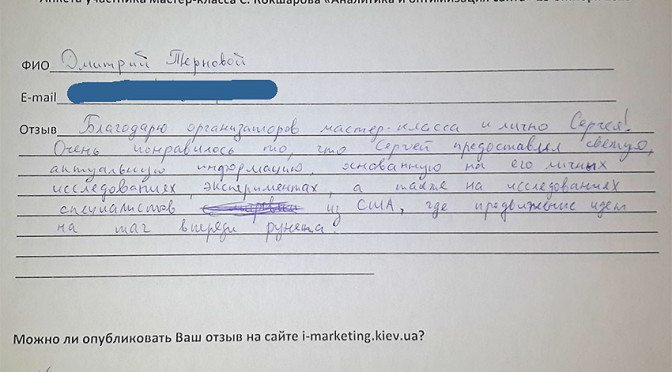 Анкета участника Мастер-класса С. Кокшарова «Аналитика и оптимизация сайта»
ФИО Дмитрий Терновой
E-mail
Отзыв Благодарю организаторов мастер-класса и лично Сергея!
Очень понравилось то, что Сергей предоставлял свежую,
актуальную информацию, основанную на его личных
исследованиях, экспериментах, а также на исследованиях
специалистов из США, где продвижение идет
на шаг впереди рунета.
Можно ли опубликовать Ваш отзыв на сайте i-marketing.kiev.ua?